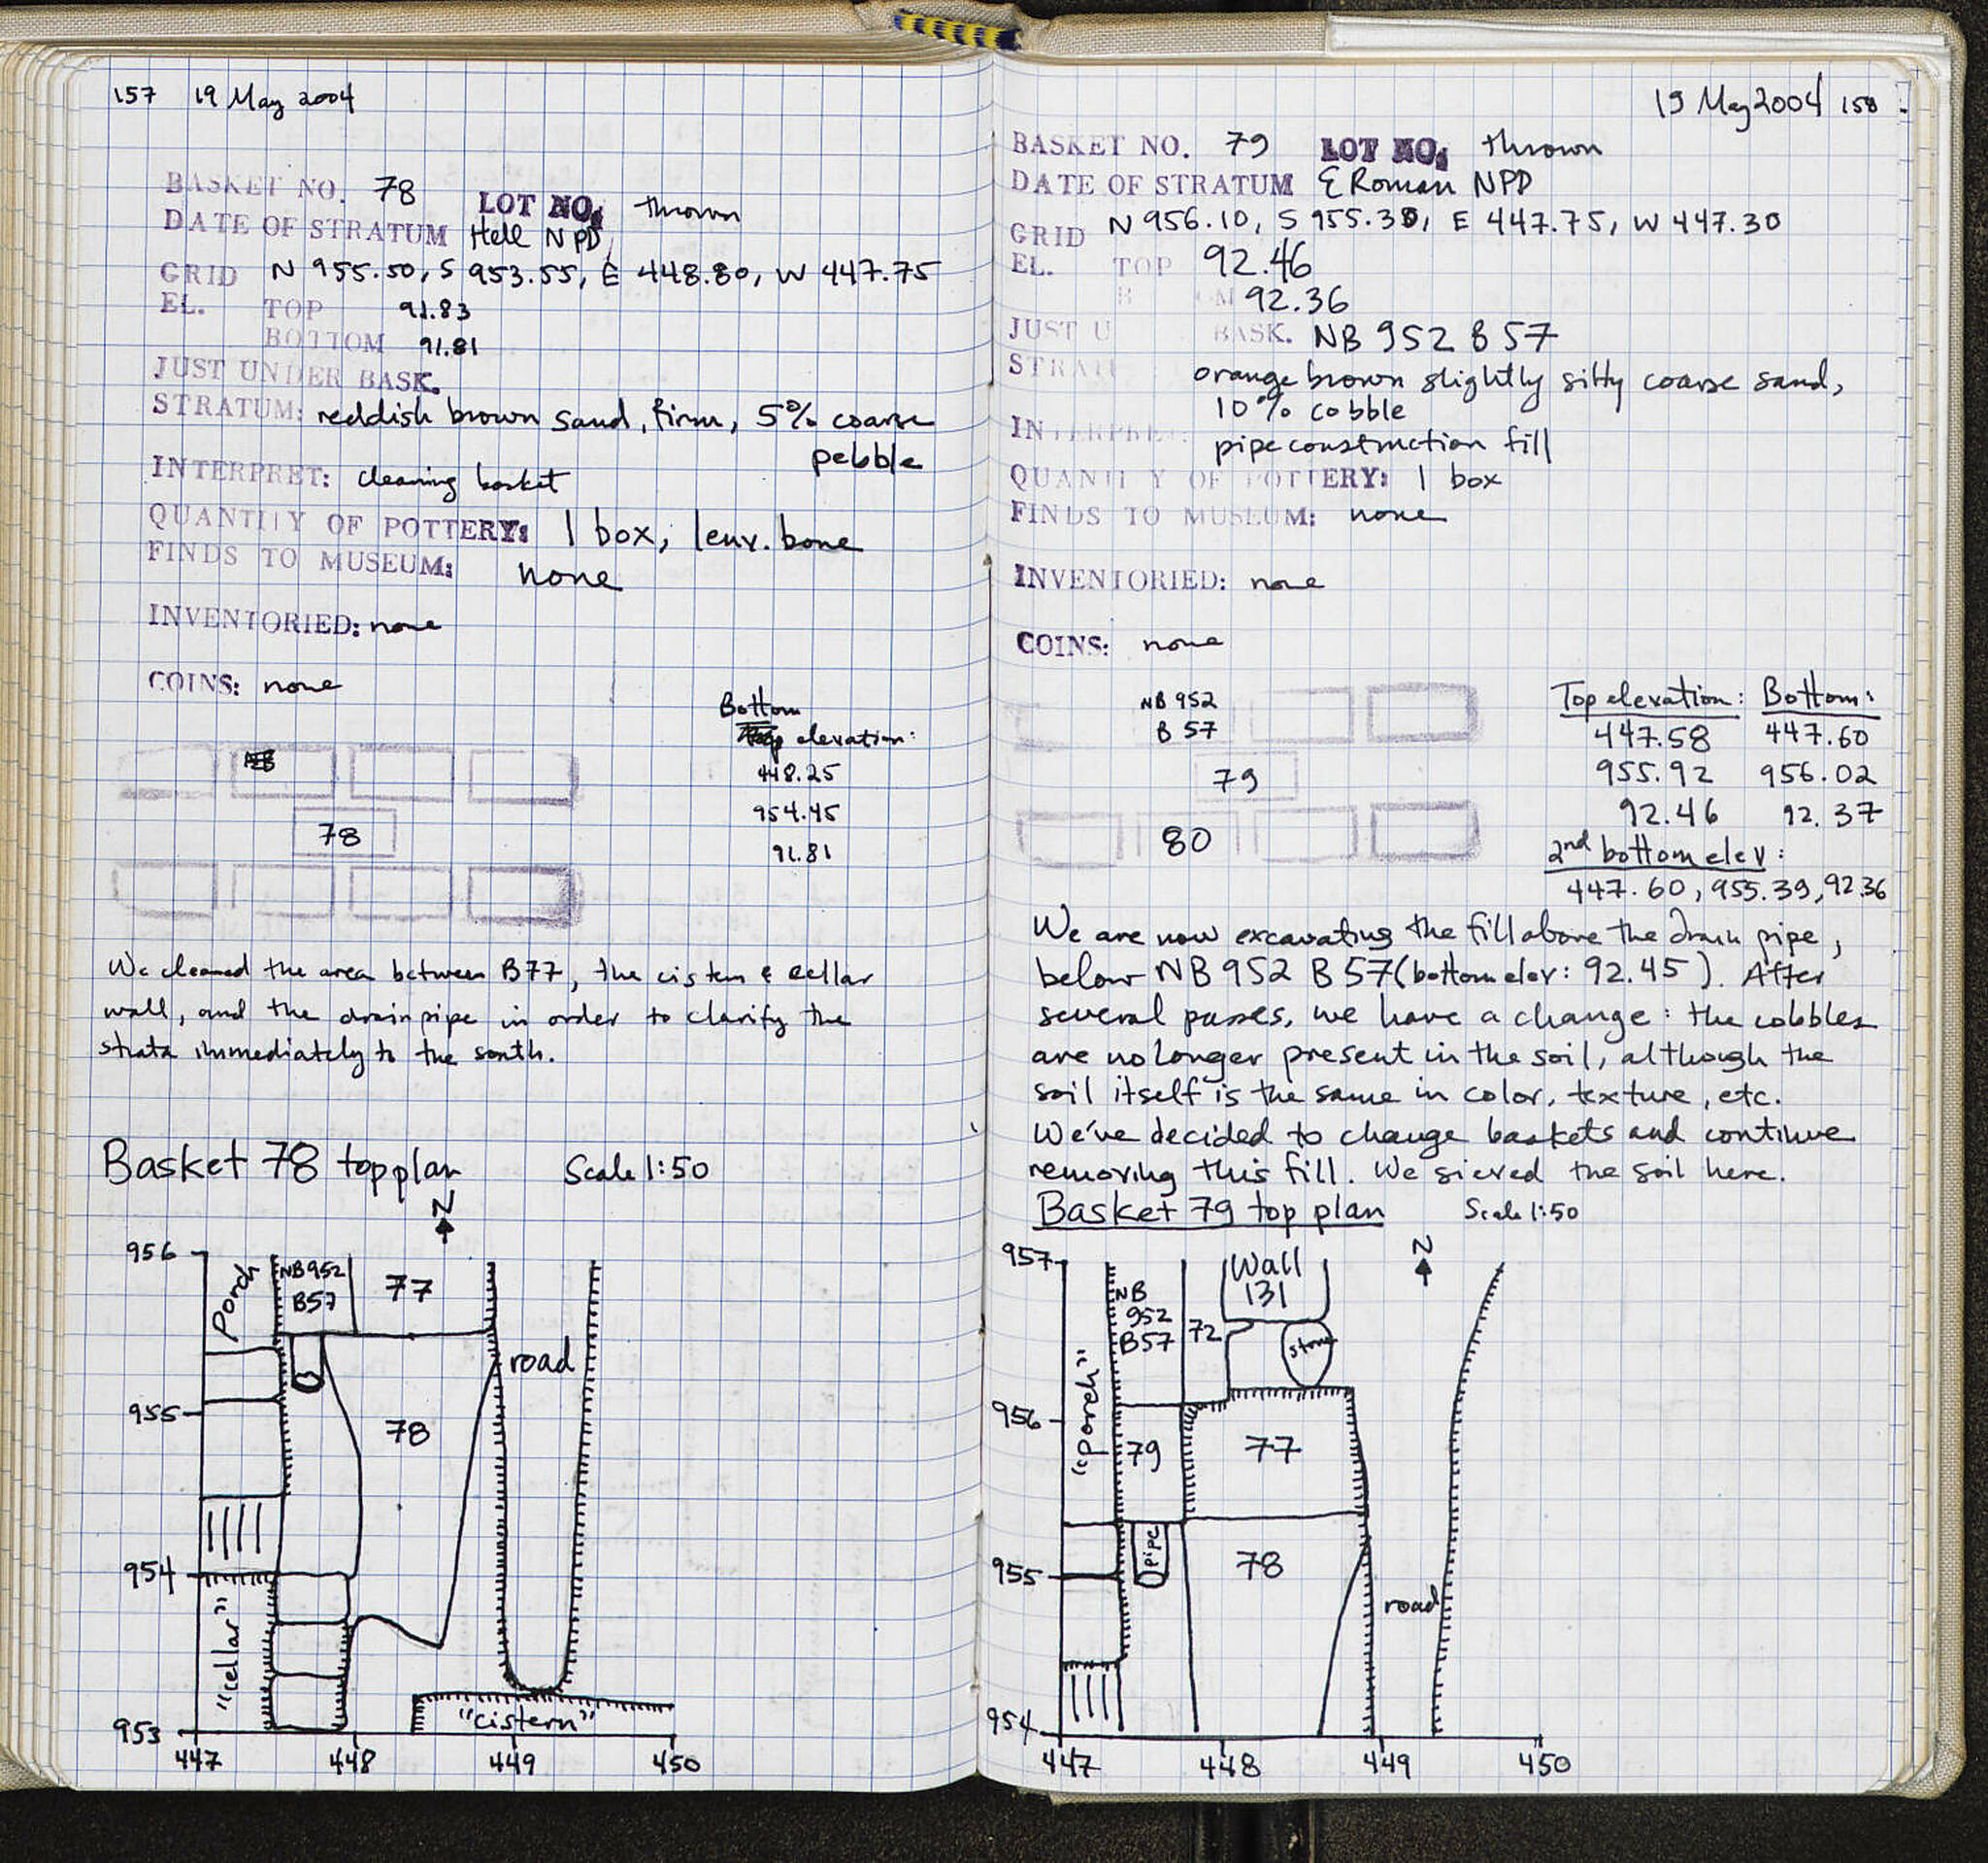 157 19 May 2004
BASKET NO. 78 LOT NO. thrown
DATE OF STRATUM Hell NPD
GRID N 955.50, S 953.55, E 448.80, W 447.75
EL. TOP 91.83
BOTTOM 91.81
JUST UNDER BASK.
STRATUM: reddish brown sand, firm, 5% coarse
pebble
INTERPRET: cleaning basket
QUANTITY OF POTTERY: 1 box, 1 env. bone
FINDS TO MUSEUM: none
INVENTORIED: none
COINS: none
Bottom
elevation:
448.25
954.45
91.81
78
We cleaned the area between B77, the cistern & cellar
wall, and the drainpipe in order to clarify the
strata immediately to the south.
Basket 78 top plan Scale 1:50
N
956
Porch
NB 952
B57
77
road
955
78
954
"cellar"
"cistern"
953
447 448 449 450
19 May 2004 158
BASKET NO. 79 LOT NO. thrown
DATE OF STRATUM E Roman NPD
GRID N 956.10, S 955.30, E 447.75, W 447.30
EL. TOP 92.46
92.36
JUST U BASK. NB 952 B 57
STRATU: orange brown slightly silty coarse sand,
10% cobble
INTERPRET: pipe construction fill
QUANTITY OF POTTERY: 1 box
FINDS TO MUSEUM: none
INVENTORIED: none
COINS: none
NB 952
B 57
79
80
Top elevation: Bottom:
447.58 447.60
955.92 956.02
92.46 92.37
2nd bottom elev:
447.60, 955.39, 92.36
We are now excavating the fill above the drain pipe,
below NB 952 B 57 (bottom elev: 92.45). After
several passes, we have a change: the cobbles
are no longer present in the soil, although the
soil itself is the same in color, texture, etc.
We've decided to change baskets and continue
removing this fill. We sieved the soil here.
Basket 79 top plan Scale 1:50
N
957
NB
952
B57
72
Wall
131
stone
"porch"
956
79
77
pipe
78
955
road
954
447 448 449 450